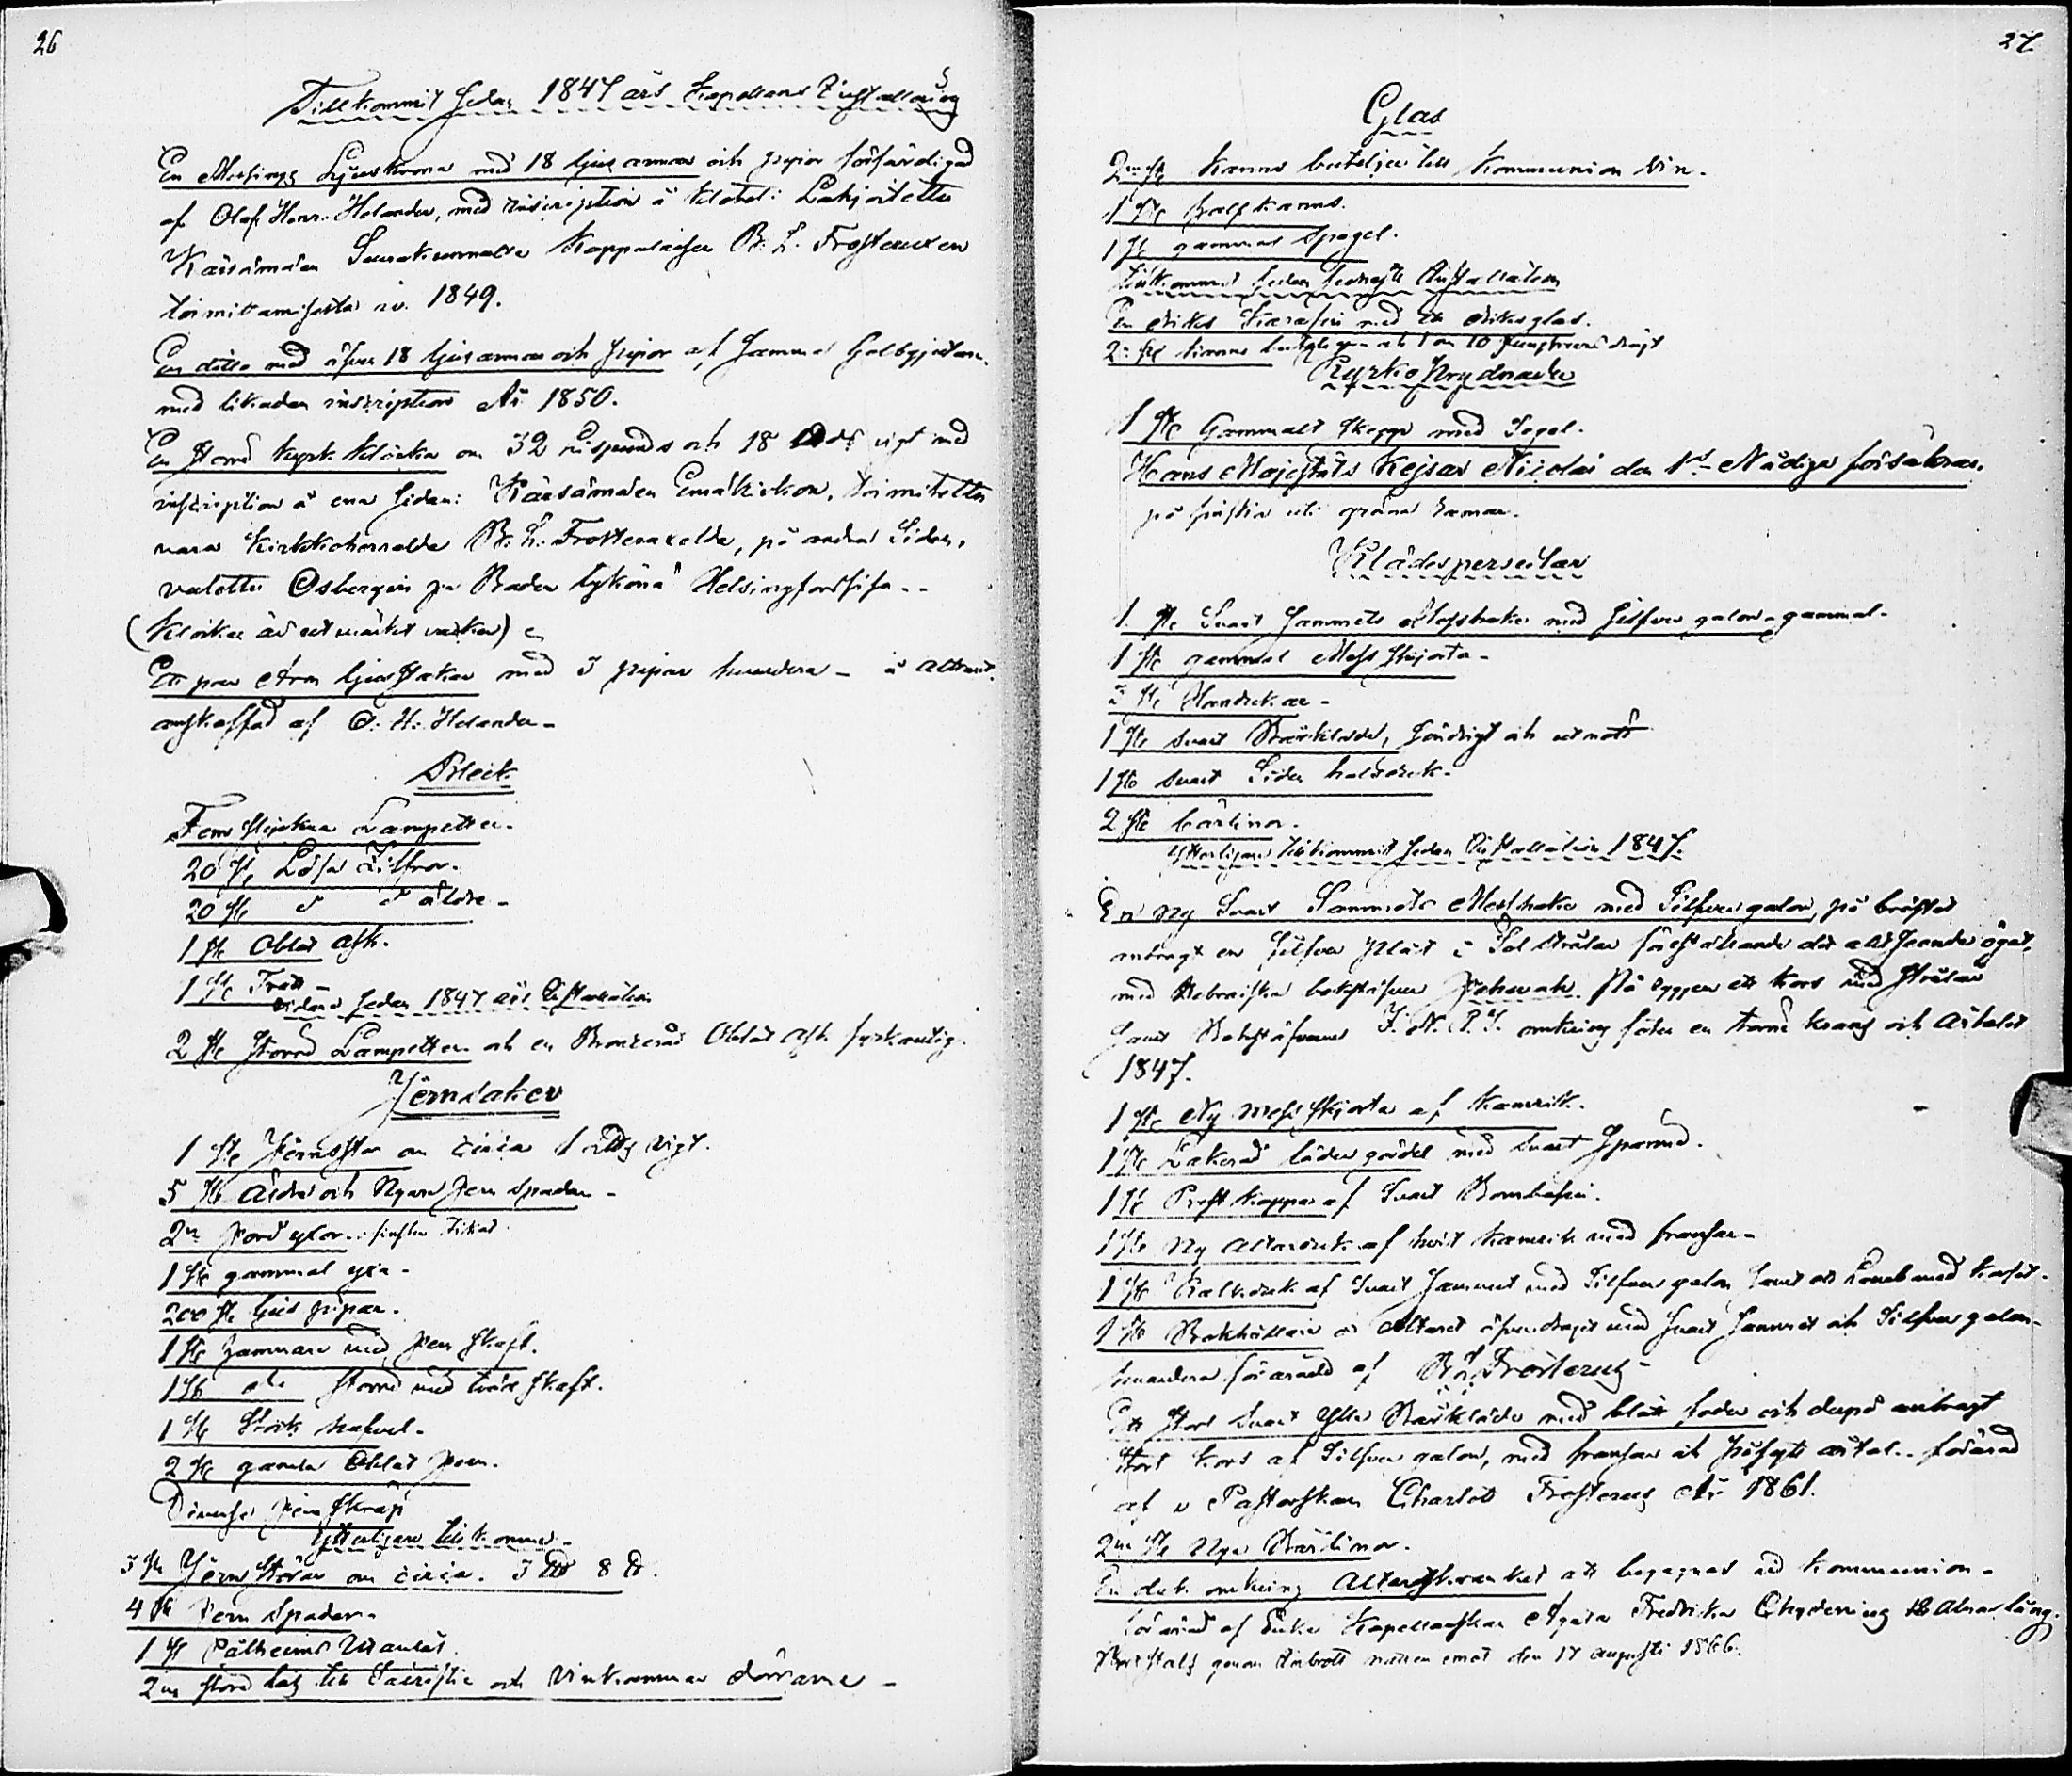 26
Tillkommit sedan 1847 års Kapellans Tillställning
En Messings Ljuskrona med 18 ljus armar och pipor förfärdigad
af Olof Henr. Helander, med inscription å klotet: Lahjoitettu
Kärsämäen Seurakunnalle Kappalaisen B. L. Frosteruxen
toimittamisesta v. 1849.
En ditto med äfven 18 ljusarmar och pipor af samma Gelbgjutare
med likadan inscription År 1850.
En större kyrk klocka om 32 Lispunds och 18 vigt med
inscription å ena sidan: Kärsämäen Emäkirkon, toimitettu
vara Kirkkoherralda B. L. Frosteruxelda, på andra Sidan,
valettu Osbergin ja Baden tykönä Helsingforsissa --
(Klockan är utmärkt vacker)
Ett par Arm ljusstakar med 3 pipor hvardera - å Altaret.
anskaffad af O. H. Helander -
Bleck
Fem stycken Lampetter.
20 st. Lösa Ziffror.
20 st. d d äldre -
1 st. Oblat Ask.
1 st. Tratt -
vidare sedan 1847 års
2 st. större Lampetter och en Bronzerad Oblat Ask fyrkantig.
Jernsaker
1 st. Jernstör om circa 1 vigt.
5 st. Äldre och Nyare Jern spadar -
2ne Jord yxor
1 st. gammal yxa -
200 st. ljus pipor.
1 st. Hammare med Jern skaft.
1 st. dto större med träd skaft.
1 st. Stock nafvel -
2 st. gamla Oblat Jern.
Diverse Jern skräp
Ytterligare tillkommit -
3 st. Jern Störar om circa. 3 8
4 st. Jern Spadar -
1 st.
2ne större lås till Sacristie och Vinkammar dörrarne -
27
Glas
2ne st. Kanns buteljer till Kommunion Vin.
1 st. half kanns.
1 st. gammal Spegel.
Tillkommit sedan
En Slikes Karafin med ett dricksglas.
2ne st. kanns
Kyrko Prydnader
1 st. Gammalt Skepp med Segel.
Hans Majestäts Kejsar Nicolai den 1s Nådiga försäkran,
på finska uti gröna ramar.
Klädespersedlar
1 st. Svart Sammets Messhake med Silfver galon - gammal -
1 st. gammal Mess skjorta -
2 st. Handukar -
1 st. svart Bårkläde, Söndrigt och utnött
1 st. svart Siden halsduk -
2 st. Gardinor.
Ytterligare tillkommit sedan 1847.
En ny Svart Sammets Messhake med Silfver galon, på bröstet
anbragt en Silfver plåt i Sol strålar föreställande det allseende ögat,
med Hebraiska bokstäfver Jehovah. På ryggen ett kors med strålar
samt Bokstäfverna I. N. R. I. omkring foten en törne krans och årtalet
1847.
1 st. Ny mess skjorta af Kamrik.
1 st. Lakerad läder gördel med svart Spänne.
1 st. Prest kappa af Svart Bombasin.
1 st. Ny Altarduk af hvit Kamrik med fransar -
1 st. Kalkduk af Svart Sammet med Silfver galon samt ett Lamb med korset -
1 st. Bokhållare å Altaret öfverdraget med Svart Sammet och Silfver galon -
förärad af B. L. Frosterus -
Ett stort Svart Ylle Bårkläde med blått foder och derpå anbragt
stort kors af Silfver galon, med fransar och påsydt årtal .. förärad
af Pastorskan Charlotta Frosterus År 1861.
2ne st. Nya Gardinor.
En duk omkring Altarskranket att begagnas vid Kommunion -
förärad af Enke Kapellanskan Agata Fredrika Chydenius 18 Alnar lång.
Bortstals genom Inbrott natten emot den 17 augusti 1866.